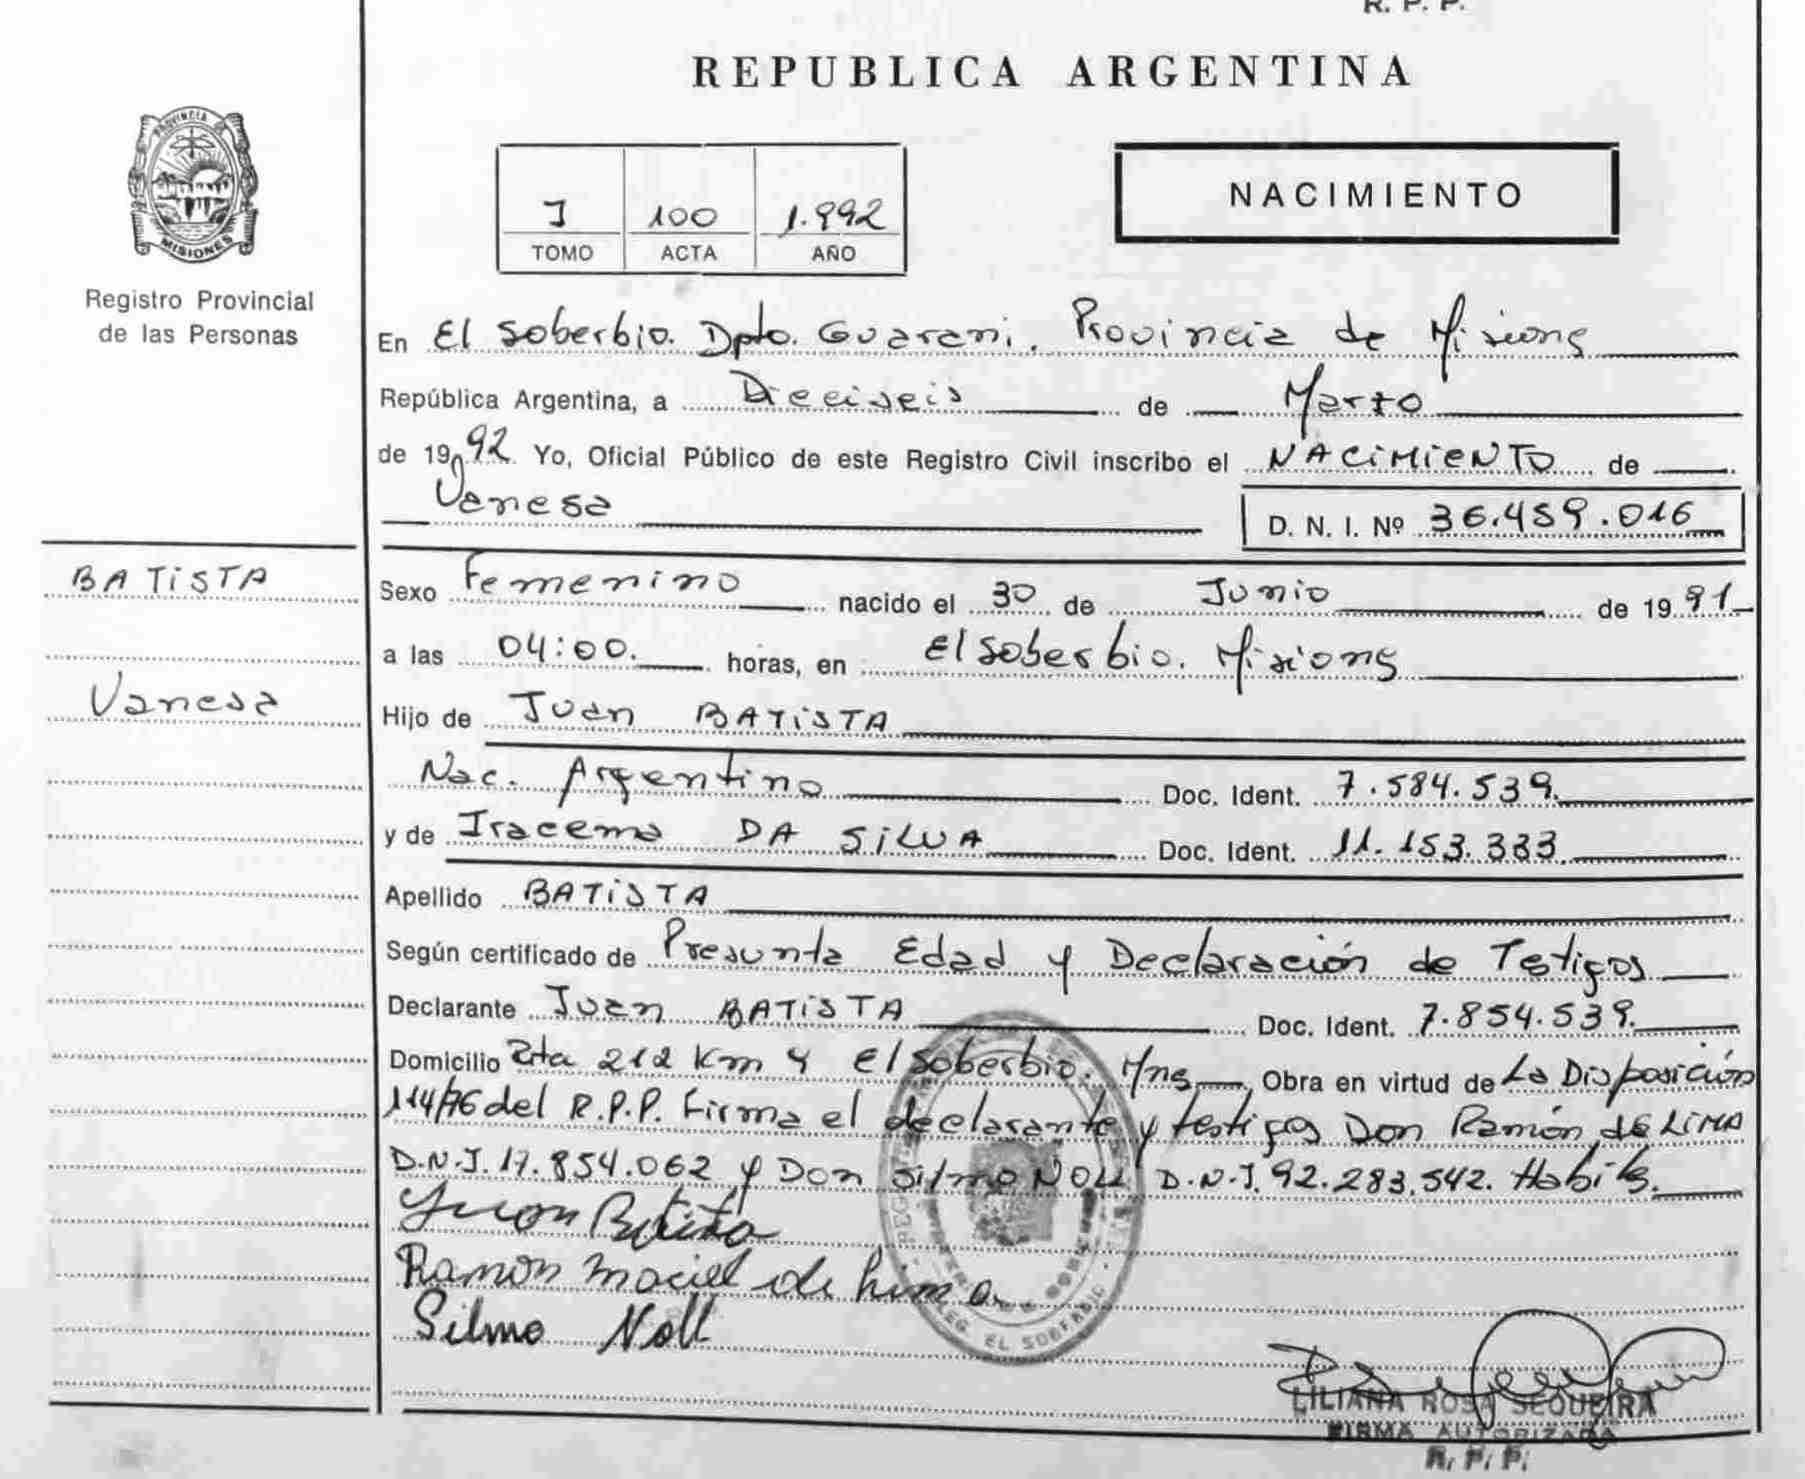 R. P. P.
REPUBLICA ARGENTINA
PROVINCIA
MISIONES
Registro Provincial
de las Personas
I 100 1.992
TOMO ACTA AÑO
NACIMIENTO
En El Soberbio. Dpto. Guarani. Provincia de Misiones
República Argentina, a Dieciseis de Marzo
de 1992 Yo, Oficial Público de este Registro Civil inscribo el NACIMIENTO de
Vanesa
D. N. I. Nº 36.459.016
BATISTA
Vanesa
Sexo Femenino nacido el 30 de Junio de 1991
a las 04:00. horas, en El Soberbio. Misiones
Hijo de Juan BATISTA
Nac. Argentino Doc. Ident. 7.584.539.
y de Iracema DA SILVA Doc. Ident. 11.153.333
Apellido BATISTA
Según certificado de Presunta Edad y Declaración de Testigos
Declarante Juan BATISTA Doc. Ident. 7.854.539.
Domicilio Rta 212 Km 4 El Soberbio. Mns Obra en virtud de La Disposición
114/76 del R.P.P. Firma el declarante y testigos Don Ramón de LIMA
D.N.I. 17.854.062 y Don Silmo NOLL D.N.I. 92.283.542. Habiles.
Juan Batista
Ramon Maciel de Lima
Silmo Noll
EL SOBERBIO
LILIANA ROSA SEQUEIRA
FIRMA AUTORIZADA
R. P. P.